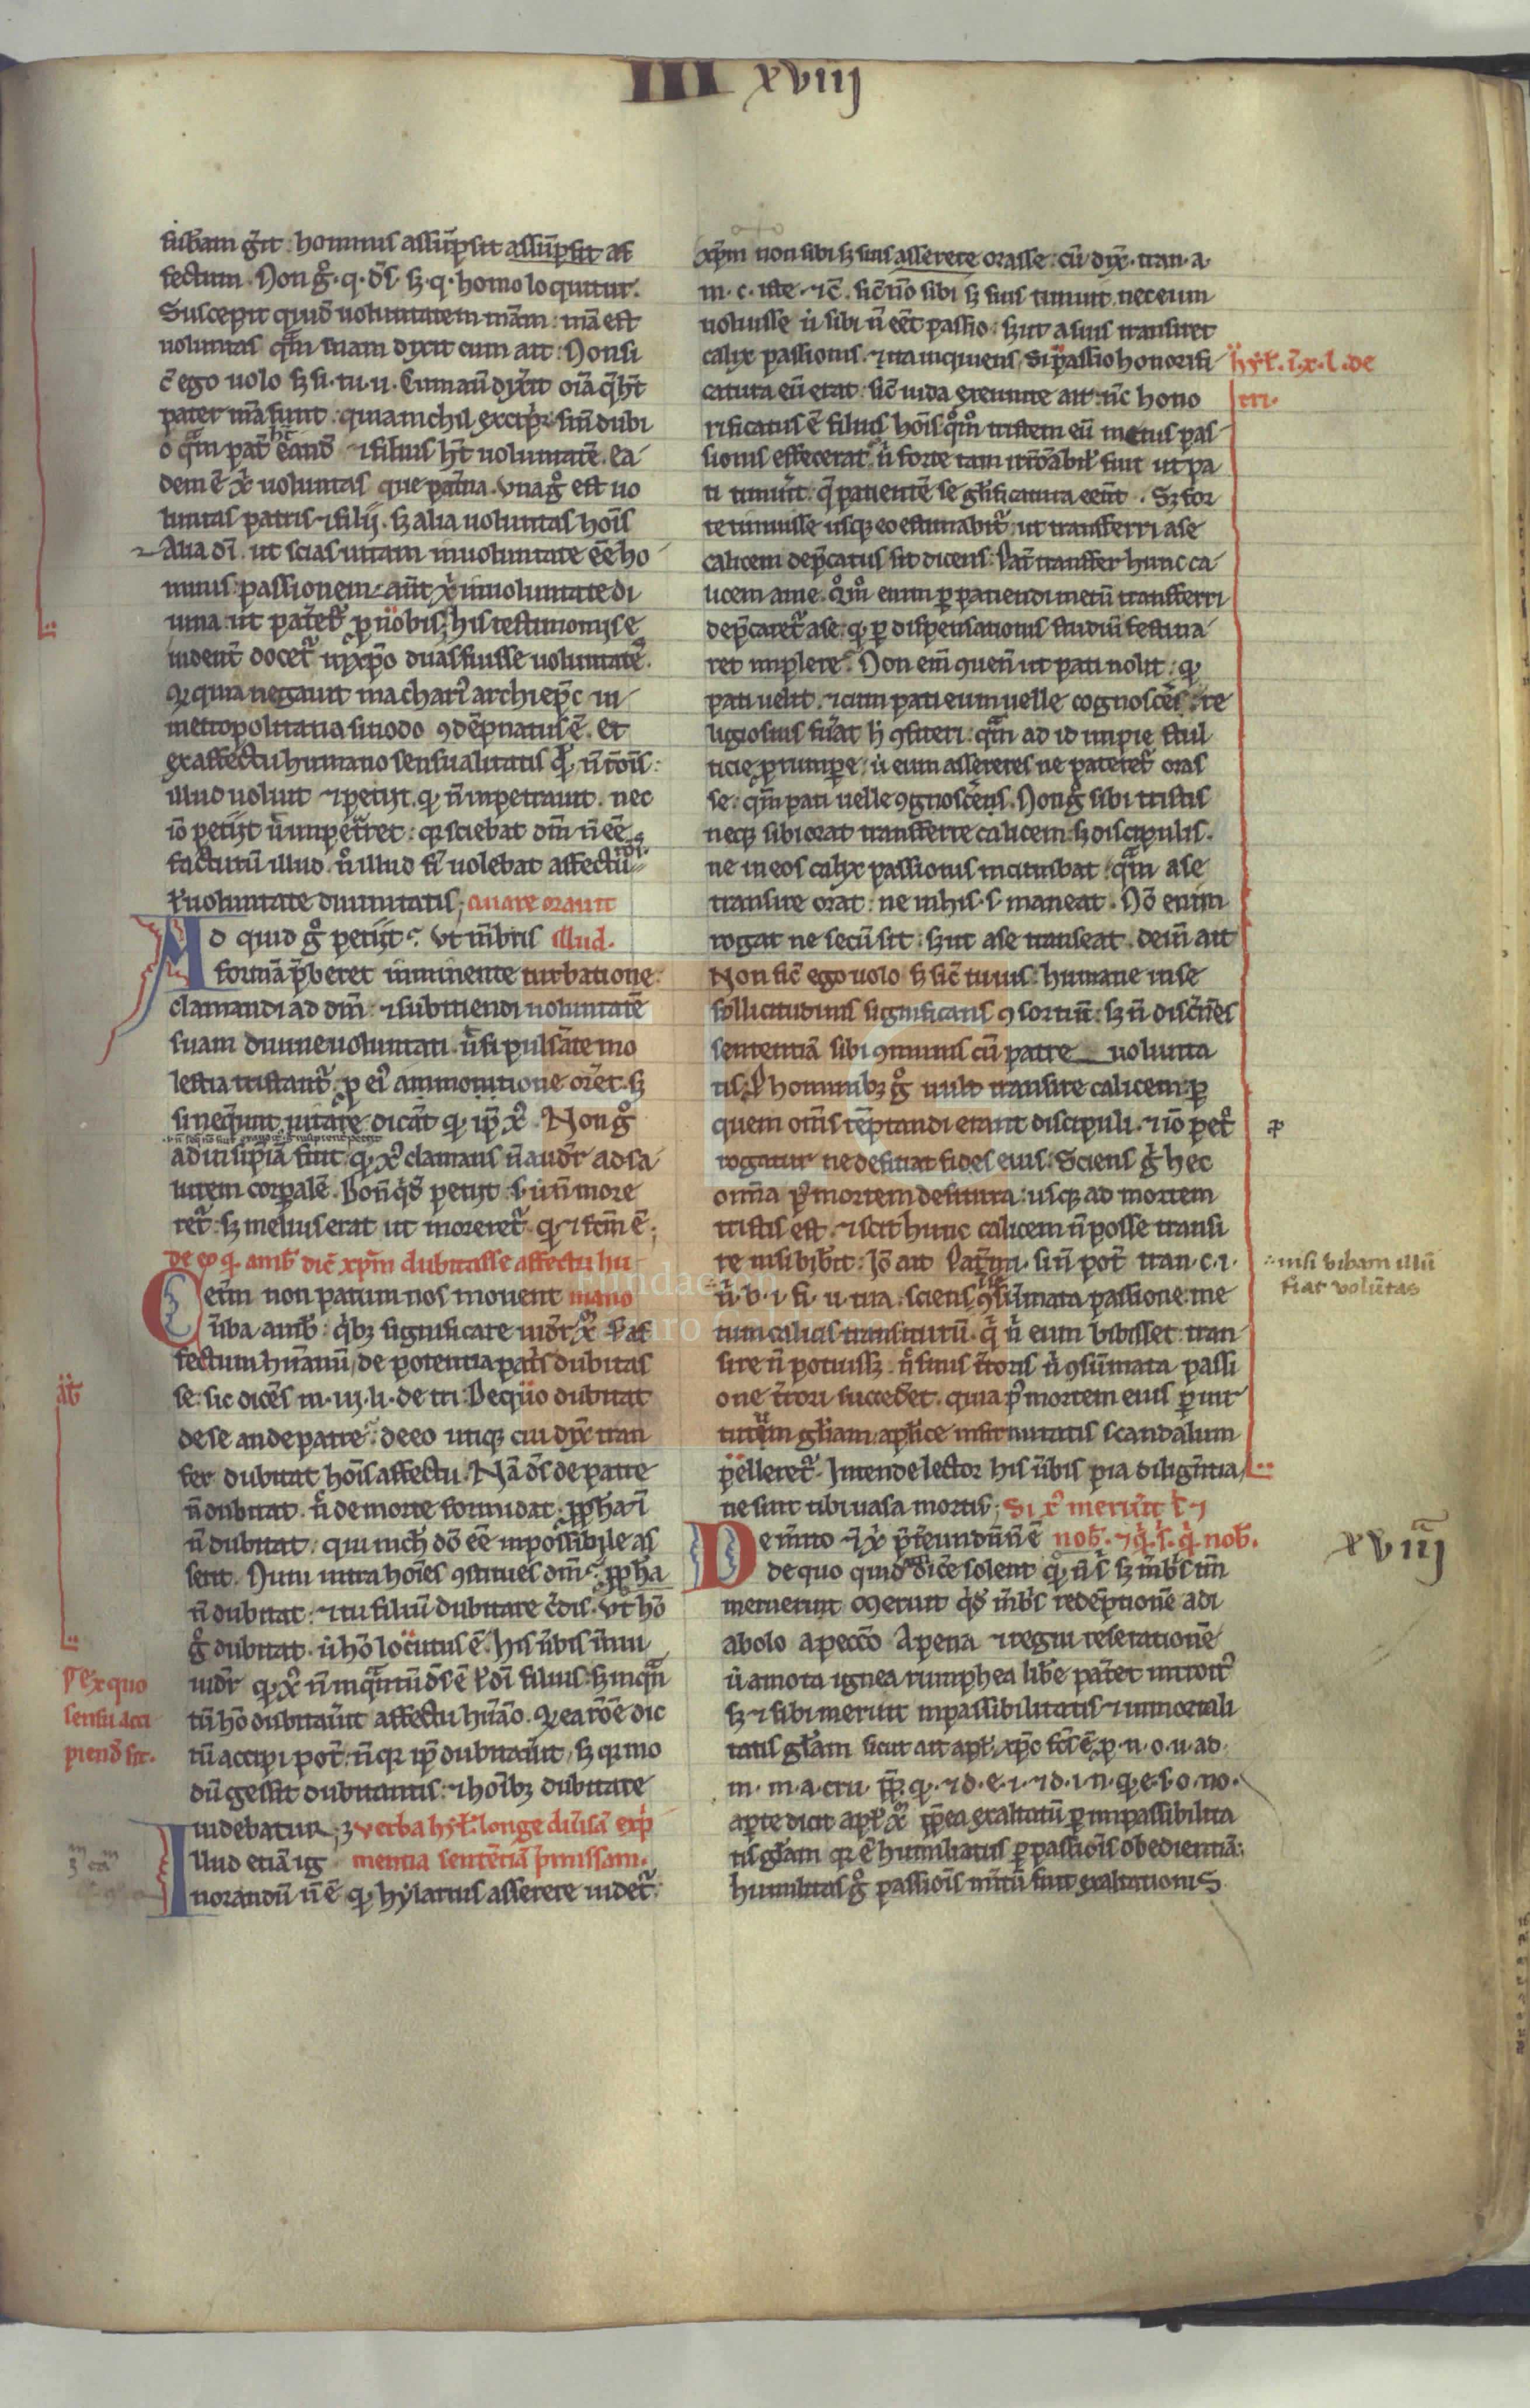 III xviij
susbam ḡit hominis assūpsit assūpsit af
fectum. Non gͦ q. dſ. sꝫ q. homo loquitur.
Suscepit quid uoluntatem meam: mēa est
uoluntas quā suam dixit cum ait: Non si
c̄ ego uolo sꝫ si. tu. u. Cum aū dixit oīa q̄ ht̄
pater mēa sunt: quia nichil excipit sine dubi
o quā pat̄ eand̄ ⁊ filius ht̄ uoluntatē. Ea
dem ē xͥ uoluntas que paterna. Vna gͦ est uo
luntas patris ⁊ filij. sꝫ alia uoluntas hoīs
Alia dī. ut scias uitam in uoluntate eē ho
minis: passionem aūt xͥ in uoluntate di
uina: ut pateretͬ pro nobis; his testimonijs e
uident̄ docetͬ in xp̄o duas fuisse uoluntates.
Qd quia negauit macharius archiep̄c in
metropolitana sinodo 9dēpnatus ē. Et
ex affectu humano sensualitatis
illud uoluit ⁊ petijt. qd n̄ inpetrauit. nec
iō petijt ut inpetͬret: qr sciebat dm̄ n̄ eē
facturū illud. nͨ illud fi uolebat affectu rōis
ł uoluntate diuinitatis; Quare orauit
Ad quid gͦ petijt? Vt mēbris illud.
formā p̄beret inminente turbatione:
clamandi ad dm̄: ⁊ subiciendi uoluntatē
suam diuine uoluntati. ut si pulsāte mo
lestia tristantͬ. p eiͥ ammotione orēt. sꝫ
si nequnt uitare dicāt qd ip̄e xͨ. Non gͦ
ad insipiā fuit qd xͨ clamans n̄ auditͬ ad sa
lutem corpalē. Bonū quid petijt s. ut n̄ more
retͬ sꝫ melius erat ut moreretͬ qd ⁊ fcm̄ ē;
De eo qd ambͨ dic̄ xpm̄ dubitasse affectu hu
Ceterum non parum nos mouent mano
uerba ambͨ: qbꝫ significare uidetͬ xͨ s. af
fectum humanū, de potentia patris dubitas
se: sic dicēs in. iij. li. de tri. De quo dubitat
de se an de patre: de eo utiqꝫ cui dix̄ tran
fer dubitat hoīs affectu. Nā dſ de patre
n̄ dubitat. n̄ de morte formidat. propheta
n̄ dubitat: qui nich̄ dō eē inpossibile as
serit. Num intra hoīes 9stitues dm̄? propheta
n̄ dubitat: ⁊ tu filiū dubitare credis. Vt hō
gͦ dubitat. ut hō locutus ē. His ubis innui
uidetͬ qd xͨ n̄ inquātū dſ ē ł dī filius: sꝫ inquā
tū hō dubitauit affectu humāo. Qd ea rōe dic
tū accipi pot̄: n̄ qr ip̄e dubitauit, sꝫ qr mo
dū gessit dubitantis: ⁊ hoībꝫ dubitare
uidebatur; verba hyl. longe diūsā exp
Illud etiā ig mentia sentētiā p̄missam.
norandū n̄ ē qd hylarius asserere uidetͬ:
xpm̄ non sibi sꝫ suis asserere orasse: cū dix̄. tran. a.
m. c. iste. ⁊c̄. sic̄ nō sibi sꝫ suis timuit. nec eum
uoluisse ut sibi n̄ eēt passio: sꝫ ut a suis transiret
calix passionis. ⁊ ita inquiens, Si passio honorifi
catura eū erat: sic̄ iuda exeunte ait: nc̄ hono
rificatus ē filius hoīs: quō tristem eū metus pas
sionis effecerat. n̄ forte tam irrōabil fuit ut pa
ti timuit. q̄ patientē se glificatura eēnt. Sꝫ for
te timuisse usqꝫ eo estimabitͬ: ut transferri a se
calicem dep̄catus sit dicens. Pat̄ transfer hunc ca
licem a me. quō enim p patiendi metū transferri
dep̄caretͬ a se: qd p dispensationis studiū festina
ret implere? Non enī 9uenit ut pati nolit: qd
pati uelit. ⁊ cum pati eum uelle cognoscēs: re
ligiosius fuāt h̄ 9fiteri: quā ad id impie stul
ticie prumpe; ut eum assereres ne pateretͬ oras
se: quē pati uelle 9gnoscēns. Non gͦ sibi tristis
neqꝫ sibi orat transferre calicem: sꝫ discipulis.
ne in eos calix passionis incumbat: quē a se
transire orat: ne in his. s. maneat. Nō enim
rogat ne secū sit: sꝫ ut a se transeat. dein̄ ait
Non sic̄ ego uolo sꝫ sic̄ tu uis: humane in se
sollicitudinis significans 9sortiū: sꝫ n̄ discnēs
sententiā sibi 9munis cū patre uolunta
tis. P hominibꝫ gͦ uult transire calicem: p
quem om̄s tēptandi erant discipuli. ⁊ iō petͬ
rogatur ne deficiat fides eius. Sciens gͦ hec
omīa p̄ mortem desitura: usqꝫ ad mortem
tristis est. ⁊ scit hunc calicem n̄ posse transi
re nisi bibͬit: Iō ait Pat̄ mi. si n̄ pot̄ tran. c. i.
n̄. b. i. fi. u. tua. sciens 9summata passione: me
tum calicis transiturū. q̄ n̄ eum bibisset: tran
sire n̄ potuissꝫ. n̄ finis troris n̄ 9sūmata passi
one trori succedet. quia p̄ mortem eius p uir
tutem gliam: aplice infirmitatis scandalum
pelleretͬ. Intende lector his ubis pia diligntia,
ne sint tibi uasa mortis; Si xͨ meruit s ⁊
De mito ⁊ xͥ p̄tereundū n̄ ē nob. ⁊ q. s. q. nob.
de quo quidā dice solent qd n̄ s. sꝫ mbris tm̄
meruerit. Meruit qd mbris redēptionē a di
abolo a peccō a pena ⁊ regni reseratione
ut amota ignea rumphea libe patet introitͬ
sꝫ ⁊ sibi meruit inpassibilitatis ⁊ inmortali
tatis gliam sicut ait apl. xpc fcs ē p. n. o. u. ad.
m. m. a. cru. pp. q. ⁊ d. e. i. ⁊ d. i. n. q. e. s. o. no.
apte dicit apl. xͨ ppea exaltatū p inpassibilita
tis gliam qr ē humiliatus p passiois obedientiā:
humilitas gͦ passiois mitū fuit exaltationis
hyl. i. x. l. de
tri.
nisi bibam illū
fiat volūtas
xviii
ab
ex quo
sensu acci
piend̄ sit.